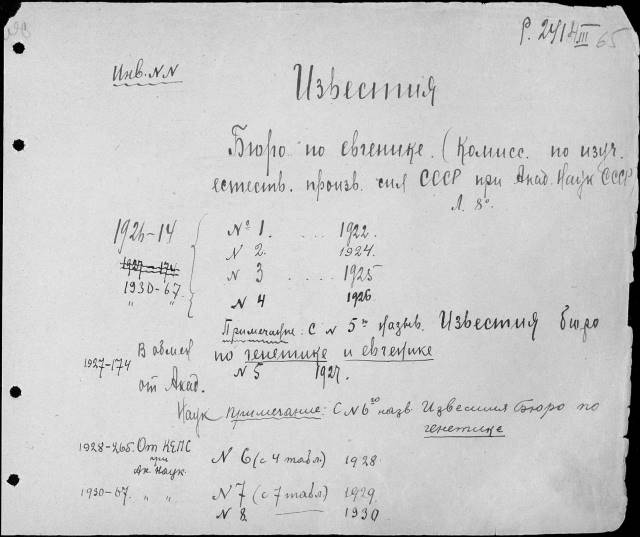 Р. 2414 III 65
Инв. NN
Известия
Бюро по евгенике. (Комисс. по изуч.
естеств. произв. сил СССР при Акад. Наук СССР
Л. 8°.
1926-14 № 1. . . . . 1922.
1927-174 N 2. 1924.
1930-67. N 3 . . . . . 1925
" " N 4 1926.
Примечание: С N 5го назыв. Известия бюро
В обмен по генетике и евгенике
1927-174 от Акад. N 5 1927.
Наук Примечание: С N 6го назв. Известия Бюро по
генетике
1928-265. От КЕПС при Ак. Наук. N 6 (с 4 табл.) 1928.
1930-67. " " N 7 (с 7 табл.) 1929.
N 8. 1930